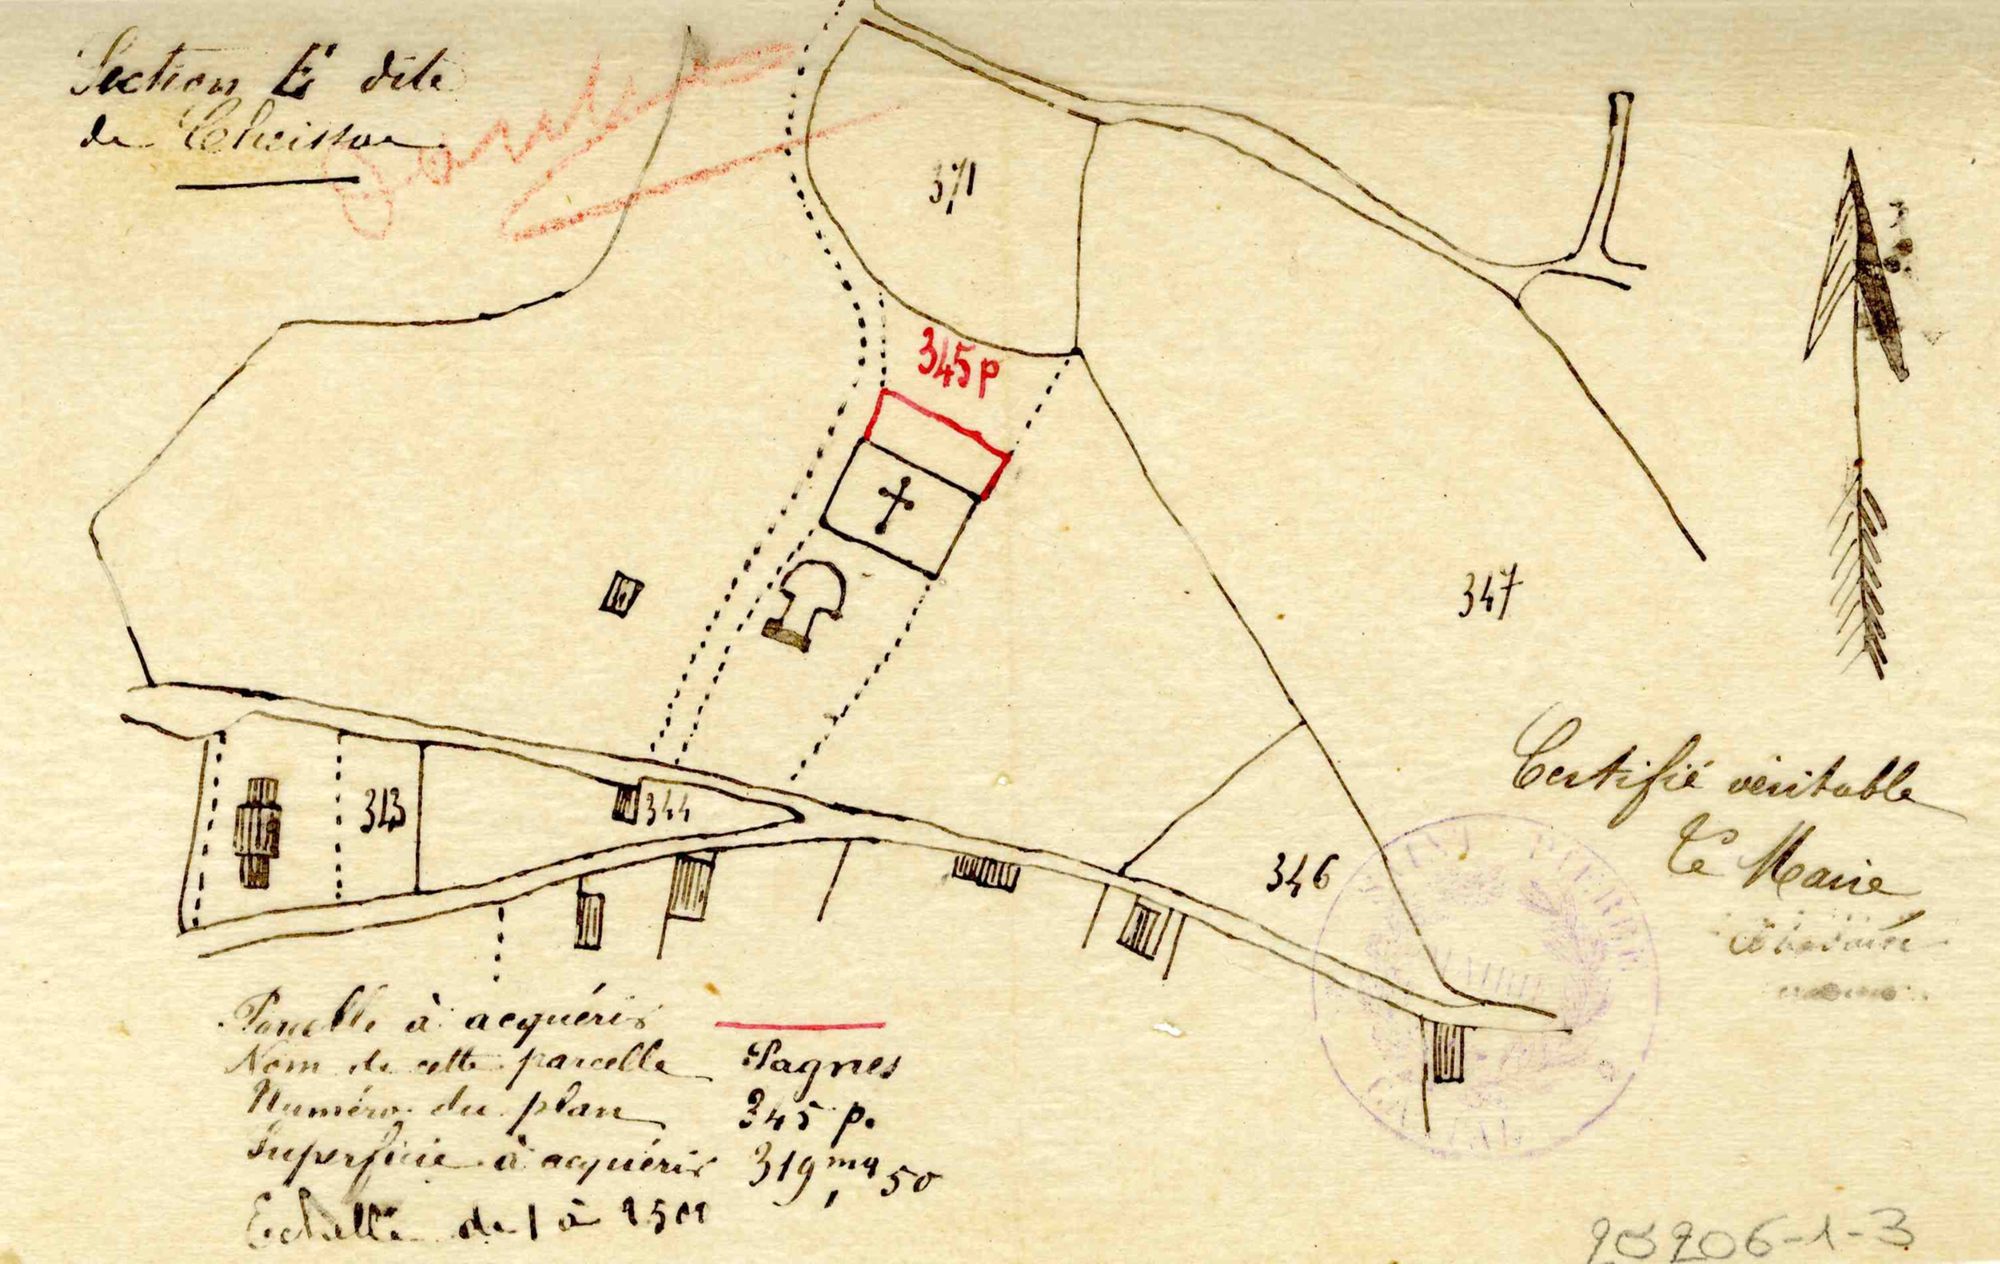 Section E dite
de
371
345 p
347
343
344
346
Certifié véritable
Le Maire
SAINT PIERRE
MAIRIE
CANTAL
Parcelle à acquérir
Nom de cette parcelle Pagnes
Numéro du plan 345 p.
Superficie à acquérir 319,mq 50
Echelle de 1 à 2500
20206-1-3